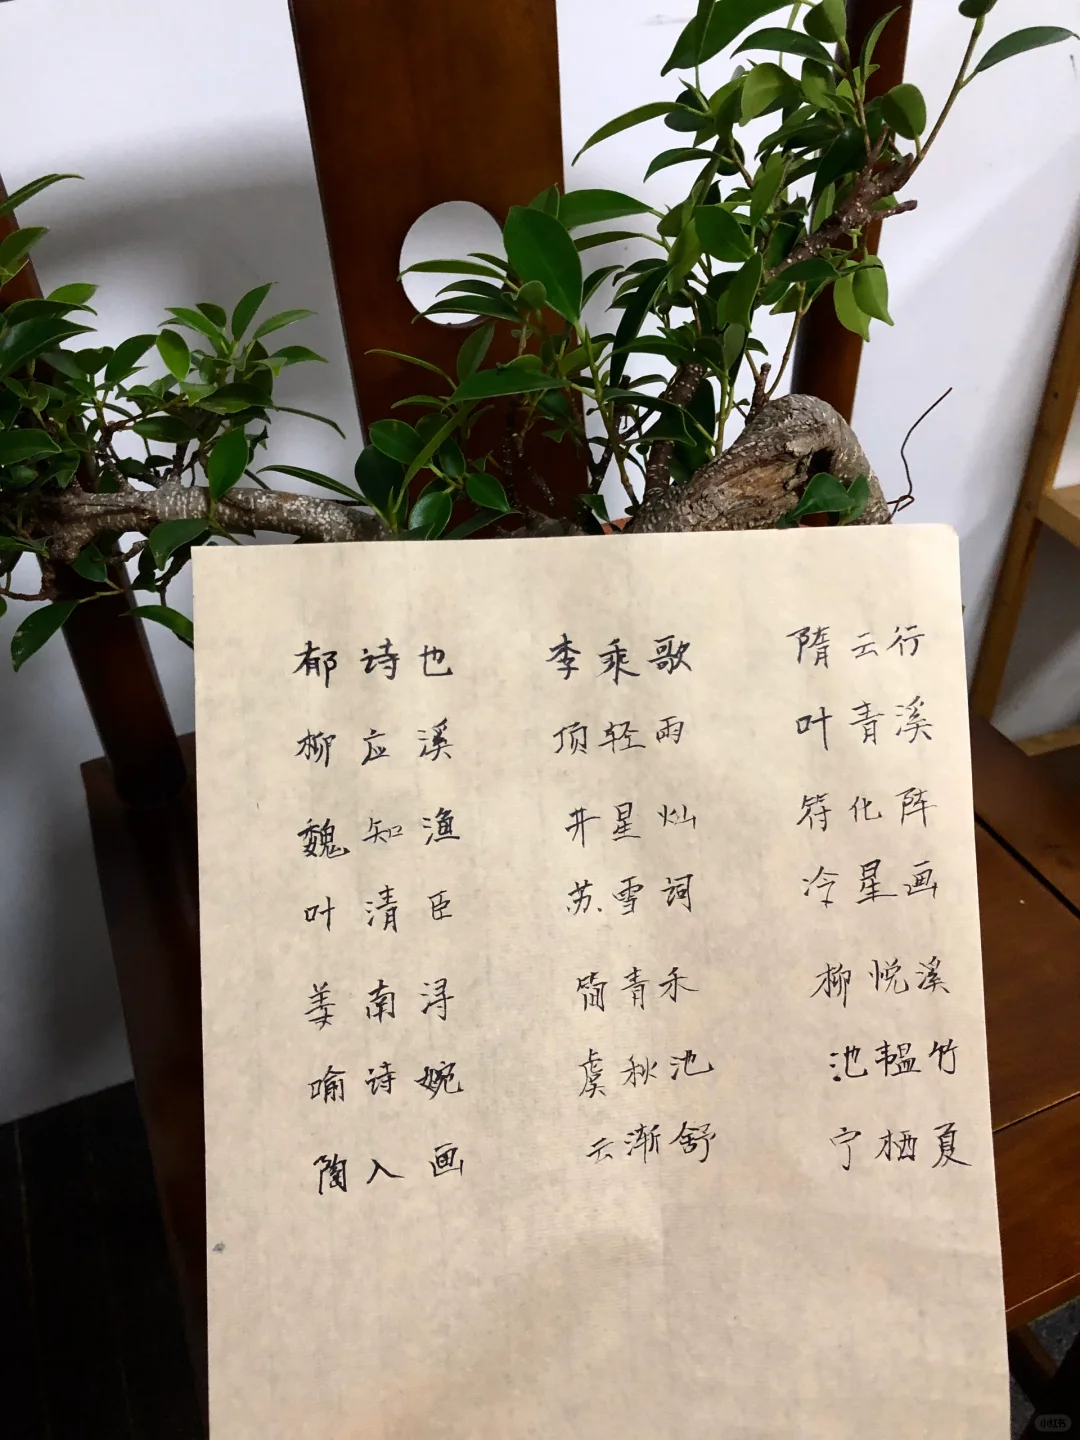 郁诗也 李乘歌 隋云行
柳应溪 顶轻雨 叶青溪
魏知渔 井星灿 符化阵
叶清臣 苏雪词 冷星画
姜南浔 简青禾 柳悦溪
喻诗婉 虞秋池 池韫竹
陶入画 云渐舒 宁栖夏
小红书